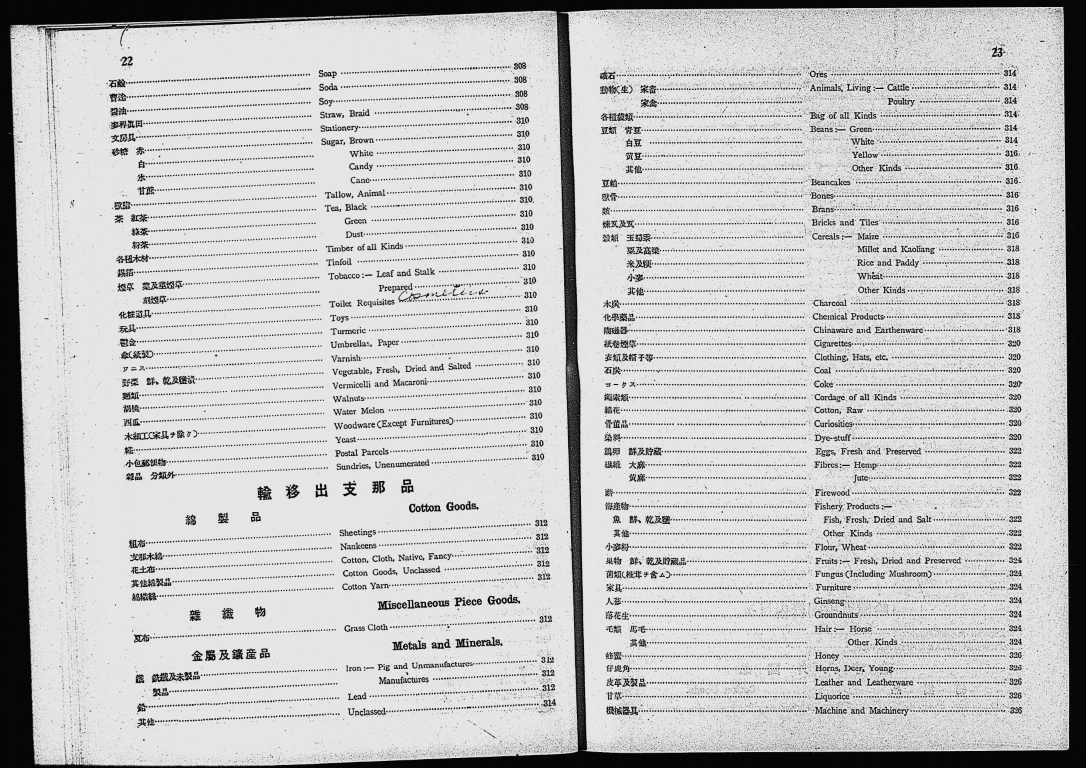 22
石鹼 Soap 308
曹達 Soda 308
醬油 Soy 308
麥稈眞田 Straw, Braid 308
文房具 Stationery 310
砂糖 赤 Sugar, Brown 310
白 White 310
氷 Candy 310
甘蔗 Cane 310
獸脂 Tallow, Animal 310
茶 紅茶 Tea, Black 310
綠茶 Green 310
粉茶 Dust 310
各種木材 Timber of all Kinds 310
錫箔 Tinfoil 310
煙草 葉及莖煙草 Tobacco:— Leaf and Stalk 310
刻煙草 Prepared 310
化粧道具 Toilet Requisites Cosmetics 310
玩具 Toys 310
鬱金 Turmeric 310
傘(紙製) Umbrellas, Paper 310
ワニス Varnish 310
野菜 鮮、乾及鹽漬 Vegetable, Fresh, Dried and Salted 310
麵類 Vermicelli and Macaroni 310
胡桃 Walnuts 310
西瓜 Water Melon 310
木細工(家具ヲ除ク) Woodware (Except Furnitures) 310
糀 Yeast 310
小包郵便物 Postal Parcels 310
雜品 分類外 Sundries, Unenumerated 310
輸移出支那品
綿製品 Cotton Goods.
粗布 Sheetings 312
支那木綿 Nankeens 312
花土布 Cotton, Cloth, Native, Fancy 312
其他綿製品 Cotton Goods, Unclassed 312
綿織絲 Cotton Yarn 312
雜織物 Miscellaneous Piece Goods.
夏布 Grass Cloth 312
金屬及鑛産品 Metals and Minerals.
鐵 銑鐵及未製品 Iron:— Pig and Unmanufactures 312
製品 Manufactures 312
鉛 Lead 312
其他 Unclassed 314
23
礦石 Ores 314
動物(生) 家畜 Animals, Living:— Cattle 314
家禽 Poultry 314
各種袋類 Bag of all Kinds 314
豆類 靑豆 Beans:— Green 314
白豆 White 314
黃豆 Yellow 316
其他 Other Kinds 316
豆粕 Beancakes 316
獸骨 Bones 316
麩 Brans 316
煉瓦及瓦 Bricks and Tiles 316
穀類 玉蜀黍 Cereals:— Maize 316
粟及高粱 Millet and Kaoliang 318
米及籾 Rice and Paddy 318
小麥 Wheat 318
其他 Other Kinds 318
木炭 Charcoal 318
化學藥品 Chemical Products 318
陶磁器 Chinaware and Earthenware 318
紙卷煙草 Cigarettes 320
衣類及帽子等 Clothing, Hats, etc. 320
石炭 Coal 320
コークス Coke 320
繩索類 Cordage of all Kinds 320
綿花 Cotton, Raw 320
骨董品 Curiosities 320
染料 Dye-stuff 320
鷄卵 鮮及貯藏 Eggs, Fresh and Preserved 322
纖維 大麻 Fibres:— Hemp 322
黃麻 Jute 322
薪 Firewood 322
海産物 Fishery Products:—
魚 鮮、乾及鹽 Fish, Fresh, Dried and Salt 322
其他 Other Kinds 322
小麥粉 Flour, Wheat 322
果物 鮮、乾及貯藏品 Fruits:— Fresh, Dried and Preserved 324
菌類(椎茸ヲ含ム) Fungus (Including Mushroom) 324
家具 Furniture 324
人蔘 Ginseng 324
落花生 Groundnuts 324
毛類 馬毛 Hair:— Horse 324
其他 Other Kinds 324
蜂蜜 Honey 326
仔鹿角 Horns, Deer, Young 326
皮革及製品 Leather and Leatherware 326
甘草 Liquorice 326
機械器具 Machine and Machinery 326